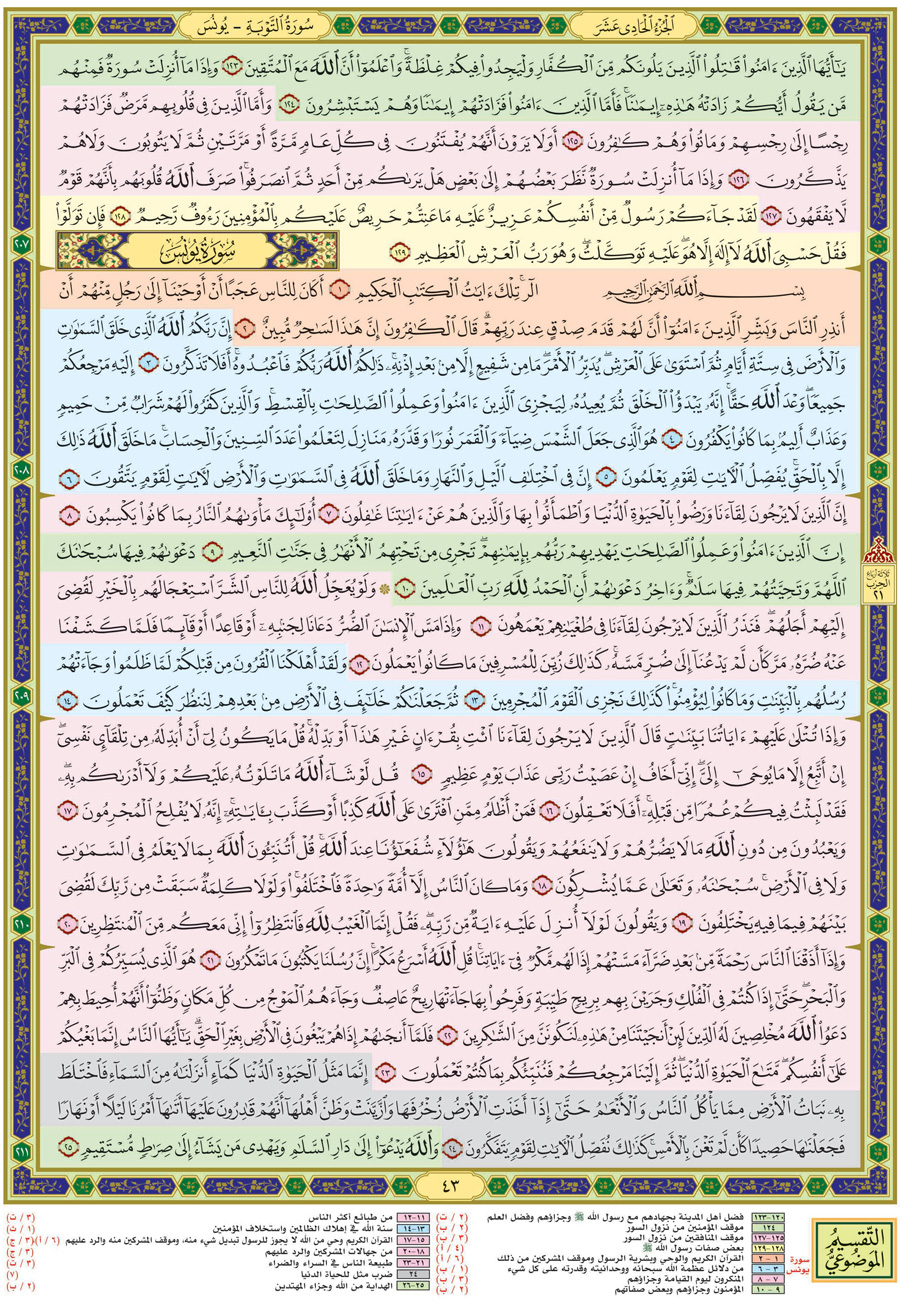 الجُزْءُ الحَادِي عَشَرَ
سُورَةُ التَّوْبَةِ - يُونُسَ
يَٰٓأَيُّهَا ٱلَّذِينَ ءَامَنُواْ قَٰتِلُواْ ٱلَّذِينَ يَلُونَكُم مِّنَ ٱلۡكُفَّارِ وَلۡيَجِدُواْ فِيكُمۡ غِلۡظَةٗۚ وَٱعۡلَمُوٓاْ أَنَّ ٱللَّهَ مَعَ ٱلۡمُتَّقِينَ ١٢٣ وَإِذَا مَآ أُنزِلَتۡ سُورَةٞ فَمِنۡهُم
مَّن يَقُولُ أَيُّكُمۡ زَادَتۡهُ هَٰذِهِۦٓ إِيمَٰنٗاۚ فَأَمَّا ٱلَّذِينَ ءَامَنُواْ فَزَادَتۡهُمۡ إِيمَٰنٗا وَهُمۡ يَسۡتَبۡشِرُونَ ١٢٤ وَأَمَّا ٱلَّذِينَ فِي قُلُوبِهِم مَّرَضٞ فَزَادَتۡهُمۡ
رِجۡسًا إِلَىٰ رِجۡسِهِمۡ وَمَاتُواْ وَهُمۡ كَٰفِرُونَ ١٢٥ أَوَلَا يَرَوۡنَ أَنَّهُمۡ يُفۡتَنُونَ فِي كُلِّ عَامٖ مَّرَّةً أَوۡ مَرَّتَيۡنِ ثُمَّ لَا يَتُوبُونَ وَلَا هُمۡ
يَذَّكَّرُونَ ١٢٦ وَإِذَا مَآ أُنزِلَتۡ سُورَةٞ نَّظَرَ بَعۡضُهُمۡ إِلَىٰ بَعۡضٍ هَلۡ يَرَىٰكُم مِّنۡ أَحَدٖ ثُمَّ ٱنصَرَفُواْۚ صَرَفَ ٱللَّهُ قُلُوبَهُم بِأَنَّهُمۡ قَوۡمٞ
لَّا يَفۡقَهُونَ ١٢٧ لَقَدۡ جَآءَكُمۡ رَسُولٞ مِّنۡ أَنفُسِكُمۡ عَزِيزٌ عَلَيۡهِ مَا عَنِتُّمۡ حَرِيصٌ عَلَيۡكُم بِٱلۡمُؤۡمِنِينَ رَءُوفٞ رَّحِيمٞ ١٢٨ فَإِن تَوَلَّوۡاْ
فَقُلۡ حَسۡبِيَ ٱللَّهُ لَآ إِلَٰهَ إِلَّا هُوَۖ عَلَيۡهِ تَوَكَّلۡتُۖ وَهُوَ رَبُّ ٱلۡعَرۡشِ ٱلۡعَظِيمِ ١٢٩
سُورَةُ يُونُسَ
بِسۡمِ ٱللَّهِ ٱلرَّحۡمَٰنِ ٱلرَّحِيمِ الٓرۚ تِلۡكَ ءَايَٰتُ ٱلۡكِتَٰبِ ٱلۡحَكِيمِ ١ أَكَانَ لِلنَّاسِ عَجَبًا أَنۡ أَوۡحَيۡنَآ إِلَىٰ رَجُلٖ مِّنۡهُمۡ أَنۡ
أَنذِرِ ٱلنَّاسَ وَبَشِّرِ ٱلَّذِينَ ءَامَنُوٓاْ أَنَّ لَهُمۡ قَدَمَ صِدۡقٍ عِندَ رَبِّهِمۡۗ قَالَ ٱلۡكَٰفِرُونَ إِنَّ هَٰذَا لَسَٰحِرٞ مُّبِينٌ ٢ إِنَّ رَبَّكُمُ ٱللَّهُ ٱلَّذِي خَلَقَ ٱلسَّمَٰوَٰتِ
وَٱلۡأَرۡضَ فِي سِتَّةِ أَيَّامٖ ثُمَّ ٱسۡتَوَىٰ عَلَى ٱلۡعَرۡشِۖ يُدَبِّرُ ٱلۡأَمۡرَۖ مَا مِن شَفِيعٍ إِلَّا مِنۢ بَعۡدِ إِذۡنِهِۦۚ ذَٰلِكُمُ ٱللَّهُ رَبُّكُمۡ فَٱعۡبُدُوهُۚ أَفَلَا تَذَكَّرُونَ ٣ إِلَيۡهِ مَرۡجِعُكُمۡ
جَمِيعٗاۖ وَعۡدَ ٱللَّهِ حَقًّاۚ إِنَّهُۥ يَبۡدَؤُاْ ٱلۡخَلۡقَ ثُمَّ يُعِيدُهُۥ لِيَجۡزِيَ ٱلَّذِينَ ءَامَنُواْ وَعَمِلُواْ ٱلصَّٰلِحَٰتِ بِٱلۡقِسۡطِۚ وَٱلَّذِينَ كَفَرُواْ لَهُمۡ شَرَابٞ مِّنۡ حَمِيمٖ
وَعَذَابٌ أَلِيمُۢ بِمَا كَانُواْ يَكۡفُرُونَ ٤ هُوَ ٱلَّذِي جَعَلَ ٱلشَّمۡسَ ضِيَآءٗ وَٱلۡقَمَرَ نُورٗا وَقَدَّرَهُۥ مَنَازِلَ لِتَعۡلَمُواْ عَدَدَ ٱلسِّنِينَ وَٱلۡحِسَابَۚ مَا خَلَقَ ٱللَّهُ ذَٰلِكَ
إِلَّا بِٱلۡحَقِّۚ يُفَصِّلُ ٱلۡأٓيَٰتِ لِقَوۡمٖ يَعۡلَمُونَ ٥ إِنَّ فِي ٱخۡتِلَٰفِ ٱلَّيۡلِ وَٱلنَّهَارِ وَمَا خَلَقَ ٱللَّهُ فِي ٱلسَّمَٰوَٰتِ وَٱلۡأَرۡضِ لَأٓيَٰتٖ لِّقَوۡمٖ يَتَّقُونَ ٦
إِنَّ ٱلَّذِينَ لَا يَرۡجُونَ لِقَآءَنَا وَرَضُواْ بِٱلۡحَيَوٰةِ ٱلدُّنۡيَا وَٱطۡمَأَنُّواْ بِهَا وَٱلَّذِينَ هُمۡ عَنۡ ءَايَٰتِنَا غَٰفِلُونَ ٧ أُوْلَٰٓئِكَ مَأۡوَىٰهُمُ ٱلنَّارُ بِمَا كَانُواْ يَكۡسِبُونَ ٨
إِنَّ ٱلَّذِينَ ءَامَنُواْ وَعَمِلُواْ ٱلصَّٰلِحَٰتِ يَهۡدِيهِمۡ رَبُّهُم بِإِيمَٰنِهِمۡۖ تَجۡرِي مِن تَحۡتِهِمُ ٱلۡأَنۡهَٰرُ فِي جَنَّٰتِ ٱلنَّعِيمِ ٩ دَعۡوَىٰهُمۡ فِيهَا سُبۡحَٰنَكَ
ٱللَّهُمَّ وَتَحِيَّتُهُمۡ فِيهَا سَلَٰمٞۚ وَءَاخِرُ دَعۡوَىٰهُمۡ أَنِ ٱلۡحَمۡدُ لِلَّهِ رَبِّ ٱلۡعَٰلَمِينَ ١٠ ۞ وَلَوۡ يُعَجِّلُ ٱللَّهُ لِلنَّاسِ ٱلشَّرَّ ٱسۡتِعۡجَالَهُم بِٱلۡخَيۡرِ لَقُضِيَ
إِلَيۡهِمۡ أَجَلُهُمۡۖ فَنَذَرُ ٱلَّذِينَ لَا يَرۡجُونَ لِقَآءَنَا فِي طُغۡيَٰنِهِمۡ يَعۡمَهُونَ ١١ وَإِذَا مَسَّ ٱلۡإِنسَٰنَ ٱلضُّرُّ دَعَانَا لِجَنۢبِهِۦٓ أَوۡ قَاعِدًا أَوۡ قَآئِمٗا فَلَمَّا كَشَفۡنَا
عَنۡهُ ضُرَّهُۥ مَرَّ كَأَن لَّمۡ يَدۡعُنَآ إِلَىٰ ضُرّٖ مَّسَّهُۥۚ كَذَٰلِكَ زُيِّنَ لِلۡمُسۡرِفِينَ مَا كَانُواْ يَعۡمَلُونَ ١٢ وَلَقَدۡ أَهۡلَكۡنَا ٱلۡقُرُونَ مِن قَبۡلِكُمۡ لَمَّا ظَلَمُواْ وَجَآءَتۡهُمۡ
رُسُلُهُم بِٱلۡبَيِّنَٰتِ وَمَا كَانُواْ لِيُؤۡمِنُواْۚ كَذَٰلِكَ نَجۡزِي ٱلۡقَوۡمَ ٱلۡمُجۡرِمِينَ ١٣ ثُمَّ جَعَلۡنَٰكُمۡ خَلَٰٓئِفَ فِي ٱلۡأَرۡضِ مِنۢ بَعۡدِهِمۡ لِنَنظُرَ كَيۡفَ تَعۡمَلُونَ ١٤
وَإِذَا تُتۡلَىٰ عَلَيۡهِمۡ ءَايَاتُنَا بَيِّنَٰتٖ قَالَ ٱلَّذِينَ لَا يَرۡجُونَ لِقَآءَنَا ٱئۡتِ بِقُرۡءَانٍ غَيۡرِ هَٰذَآ أَوۡ بَدِّلۡهُۚ قُلۡ مَا يَكُونُ لِيٓ أَنۡ أُبَدِّلَهُۥ مِن تِلۡقَآيِٕ نَفۡسِيٓۖ
إِنۡ أَتَّبِعُ إِلَّا مَا يُوحَىٰٓ إِلَيَّۖ إِنِّيٓ أَخَافُ إِنۡ عَصَيۡتُ رَبِّي عَذَابَ يَوۡمٍ عَظِيمٖ ١٥ قُل لَّوۡ شَآءَ ٱللَّهُ مَا تَلَوۡتُهُۥ عَلَيۡكُمۡ وَلَآ أَدۡرَىٰكُم بِهِۦۖ
فَقَدۡ لَبِثۡتُ فِيكُمۡ عُمُرٗا مِّن قَبۡلِهِۦٓۚ أَفَلَا تَعۡقِلُونَ ١٦ فَمَنۡ أَظۡلَمُ مِمَّنِ ٱفۡتَرَىٰ عَلَى ٱللَّهِ كَذِبًا أَوۡ كَذَّبَ بِـَٔايَٰتِهِۦٓۚ إِنَّهُۥ لَا يُفۡلِحُ ٱلۡمُجۡرِمُونَ ١٧
وَيَعۡبُدُونَ مِن دُونِ ٱللَّهِ مَا لَا يَضُرُّهُمۡ وَلَا يَنفَعُهُمۡ وَيَقُولُونَ هَٰٓؤُلَآءِ شُفَعَٰٓؤُنَا عِندَ ٱللَّهِۚ قُلۡ أَتُنَبِّـُٔونَ ٱللَّهَ بِمَا لَا يَعۡلَمُ فِي ٱلسَّمَٰوَٰتِ
وَلَا فِي ٱلۡأَرۡضِۚ سُبۡحَٰنَهُۥ وَتَعَٰلَىٰ عَمَّا يُشۡرِكُونَ ١٨ وَمَا كَانَ ٱلنَّاسُ إِلَّآ أُمَّةٗ وَٰحِدَةٗ فَٱخۡتَلَفُواْۚ وَلَوۡلَا كَلِمَةٞ سَبَقَتۡ مِن رَّبِّكَ لَقُضِيَ
بَيۡنَهُمۡ فِيمَا فِيهِ يَخۡتَلِفُونَ ١٩ وَيَقُولُونَ لَوۡلَآ أُنزِلَ عَلَيۡهِ ءَايَةٞ مِّن رَّبِّهِۦۖ فَقُلۡ إِنَّمَا ٱلۡغَيۡبُ لِلَّهِ فَٱنتَظِرُوٓاْ إِنِّي مَعَكُم مِّنَ ٱلۡمُنتَظِرِينَ ٢٠
وَإِذَآ أَذَقۡنَا ٱلنَّاسَ رَحۡمَةٗ مِّنۢ بَعۡدِ ضَرَّآءَ مَسَّتۡهُمۡ إِذَا لَهُم مَّكۡرٞ فِيٓ ءَايَاتِنَاۚ قُلِ ٱللَّهُ أَسۡرَعُ مَكۡرًاۚ إِنَّ رُسُلَنَا يَكۡتُبُونَ مَا تَمۡكُرُونَ ٢١ هُوَ ٱلَّذِي يُسَيِّرُكُمۡ فِي ٱلۡبَرِّ
وَٱلۡبَحۡرِۖ حَتَّىٰٓ إِذَا كُنتُمۡ فِي ٱلۡفُلۡكِ وَجَرَيۡنَ بِهِم بِرِيحٖ طَيِّبَةٖ وَفَرِحُواْ بِهَا جَآءَتۡهَا رِيحٌ عَاصِفٞ وَجَآءَهُمُ ٱلۡمَوۡجُ مِن كُلِّ مَكَانٖ وَظَنُّوٓاْ أَنَّهُمۡ أُحِيطَ بِهِمۡ
دَعَوُاْ ٱللَّهَ مُخۡلِصِينَ لَهُ ٱلدِّينَ لَئِنۡ أَنجَيۡتَنَا مِنۡ هَٰذِهِۦ لَنَكُونَنَّ مِنَ ٱلشَّٰكِرِينَ ٢٢ فَلَمَّآ أَنجَىٰهُمۡ إِذَا هُمۡ يَبۡغُونَ فِي ٱلۡأَرۡضِ بِغَيۡرِ ٱلۡحَقِّۗ يَٰٓأَيُّهَا ٱلنَّاسُ إِنَّمَا بَغۡيُكُمۡ
عَلَىٰٓ أَنفُسِكُمۖ مَّتَٰعَ ٱلۡحَيَوٰةِ ٱلدُّنۡيَاۖ ثُمَّ إِلَيۡنَا مَرۡجِعُكُمۡ فَنُنَبِّئُكُم بِمَا كُنتُمۡ تَعۡمَلُونَ ٢٣ إِنَّمَا مَثَلُ ٱلۡحَيَوٰةِ ٱلدُّنۡيَا كَمَآءٍ أَنزَلۡنَٰهُ مِنَ ٱلسَّمَآءِ فَٱخۡتَلَطَ
بِهِۦ نَبَاتُ ٱلۡأَرۡضِ مِمَّا يَأۡكُلُ ٱلنَّاسُ وَٱلۡأَنۡعَٰمُ حَتَّىٰٓ إِذَآ أَخَذَتِ ٱلۡأَرۡضُ زُخۡرُفَهَا وَٱزَّيَّنَتۡ وَظَنَّ أَهۡلُهَآ أَنَّهُمۡ قَٰدِرُونَ عَلَيۡهَآ أَتَىٰهَآ أَمۡرُنَا لَيۡلًا أَوۡ نَهَارٗا
فَجَعَلۡنَٰهَا حَصِيدٗا كَأَن لَّمۡ تَغۡنَ بِٱلۡأَمۡسِۚ كَذَٰلِكَ نُفَصِّلُ ٱلۡأٓيَٰتِ لِقَوۡمٖ يَتَفَكَّرُونَ ٢٤ وَٱللَّهُ يَدۡعُوٓاْ إِلَىٰ دَارِ ٱلسَّلَٰمِ وَيَهۡدِي مَن يَشَآءُ إِلَىٰ صِرَٰطٖ مُّسۡتَقِيمٖ ٢٥
ثلاثة أرباع
الحزب
٢١
٢٠٧
٢٠٨
٢٠٩
٢١٠
٢١١
٤٣
التَّقسِيمُ
المَوضُوعِيُّ
١٢٠-١٢٣ فضل أهل المدينة بجهادهم مع رسول الله ﷺ وجزاؤهم وفضل العلم (٢ / ت)
١٢٤ موقف المؤمنين من نزول السور (٢ / ب)
١٢٥-١٢٧ موقف المنافقين من نزول السور (٣ / ب)
١٢٨-١٢٩ بعض صفات رسول الله ﷺ (٤ / أ)
سورة يونس
١ - ٢ القرآن الكريم والوحي وبشرية الرسول وموقف المشركين من ذلك (٦ / أ)
٣ - ٦ من دلائل عظمة الله سبحانه ووحدانيته وقدرته على كل شيء (١ / ب)
٧ - ٨ المنكرون ليوم القيامة وجزاؤهم (٣ / ب)
٩ - ١٠ المؤمنون وجزاؤهم وبعض صفاتهم (٢ / ب)
١١-١٢ من طبائع أكثر الناس (٣ / ت)
١٣-١٤ سنة الله في إهلاك الظالمين واستخلاف المؤمنين (١ / ت)
١٥-١٧ القرآن الكريم وحي من الله لا يجوز للرسول تبديل شيء منه، وموقف المشركين منه والرد عليهم (٦ / أ) (٣ / ج)
١٨-٢٠ من جهالات المشركين والرد عليهم (٣ / ج)
٢١-٢٣ طبيعة الناس في السراء والضراء (٣ / ت)
٢٤ ضرب مثل للحياة الدنيا (٧)
٢٥-٢٦ الهداية من الله وجزاء المهتدين (٢ / ب)